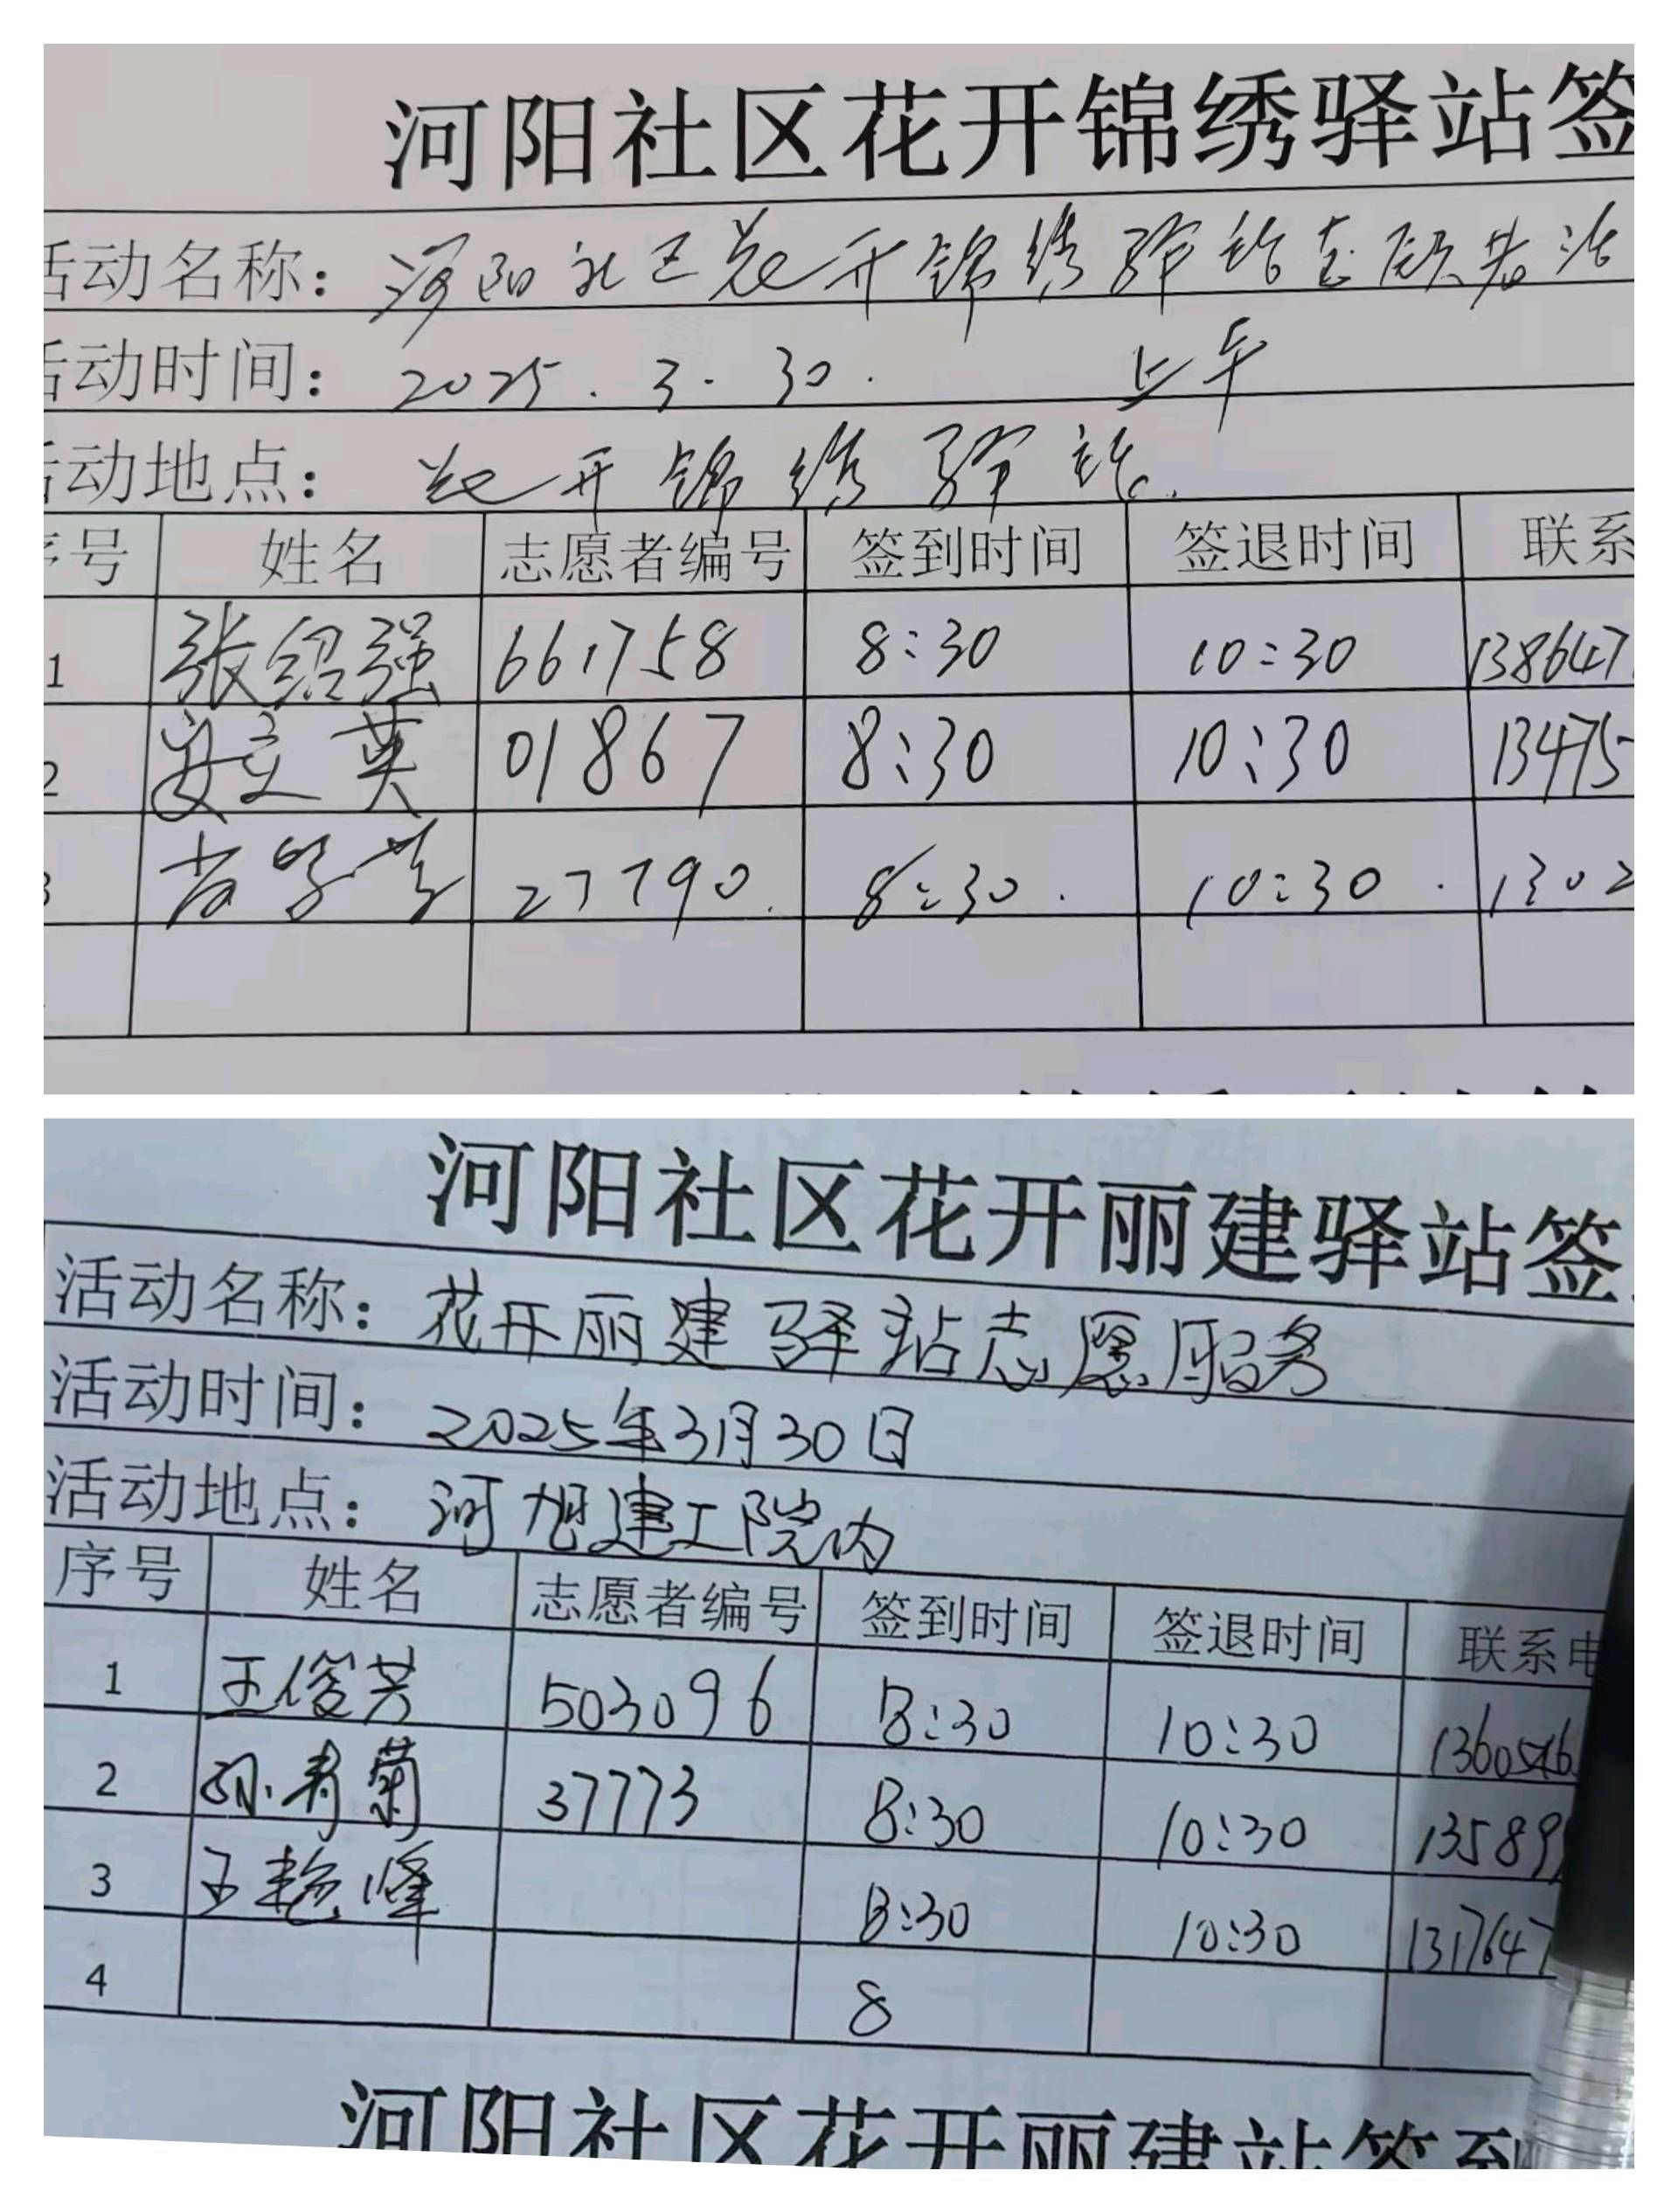 河阳社区花开锦绣驿站签
活动名称：河阳社区花开锦绣驿站志愿者活
活动时间：2025.3.30. 上午
活动地点：花开锦绣驿站.
序号 姓名 志愿者编号 签到时间 签退时间 联系
1 张绍强 661758 8:30 10:30 138647
2 立英 01867 8:30 10:30 13475
3 27790. 8:30. 10:30. 1302
河阳社区花开丽建驿站签
活动名称：花开丽建驿站志愿服务
活动时间：2025年3月30日
活动地点：河旭建工院内
序号 姓名 志愿者编号 签到时间 签退时间 联系电
1 王俊芳 503096 8:30 10:30 1360546
2 孙秀菊 37773 8:30 10:30 13589
3 王艳峰 8:30 10:30 131764
4 8
河阳社区花开丽建站签到